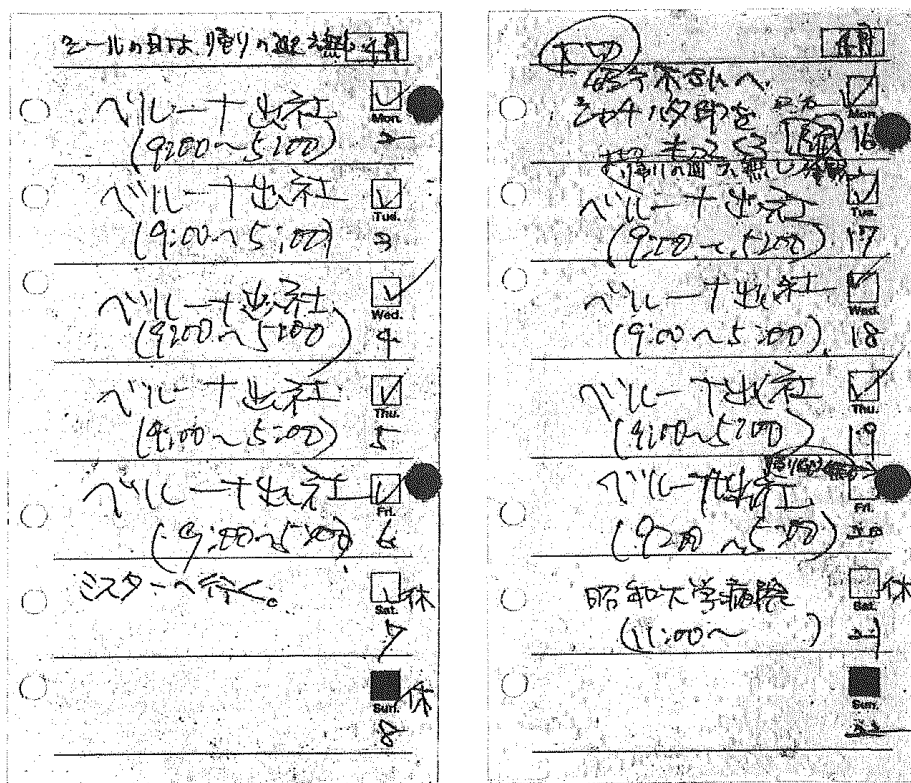 シールの日は、帰りの迎え無し 4月
ベルーナ出社
(9:00〜5:00)
Mon.
2
ベルーナ出社
(9:00〜5:00)
Tue.
3
ベルーナ出社
(9:00〜5:00)
Wed.
4
ベルーナ出社
(9:00〜5:00)
Thu.
5
ベルーナ出社
(9:00〜5:00)
Fri.
6
ミスターへ行く。
Sat. 休
7
Sun. 休
8
4月
シャチハタ印を
Mon.
16
帰りの迎え無し
ベルーナ出社
(9:00〜5:00)
Tue.
17
ベルーナ出社
(9:00〜5:00)
Wed.
18
ベルーナ出社
(9:00〜5:00)
Thu.
19
ベルーナ出社
(9:00〜5:00)
Fri.
20
昭和大学病院
(11:00〜 )
Sat. 休
21
Sun.
22